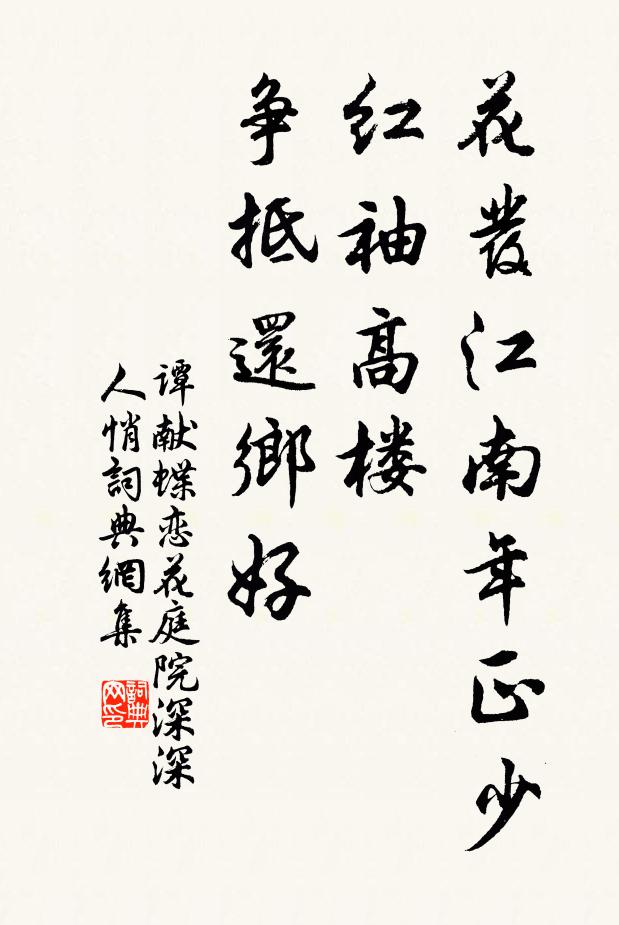 花發江南年正少
红袖高楼
争抵還鄉好
谭献蝶恋花庭院深深
人悄詞典網集
詞典
网印